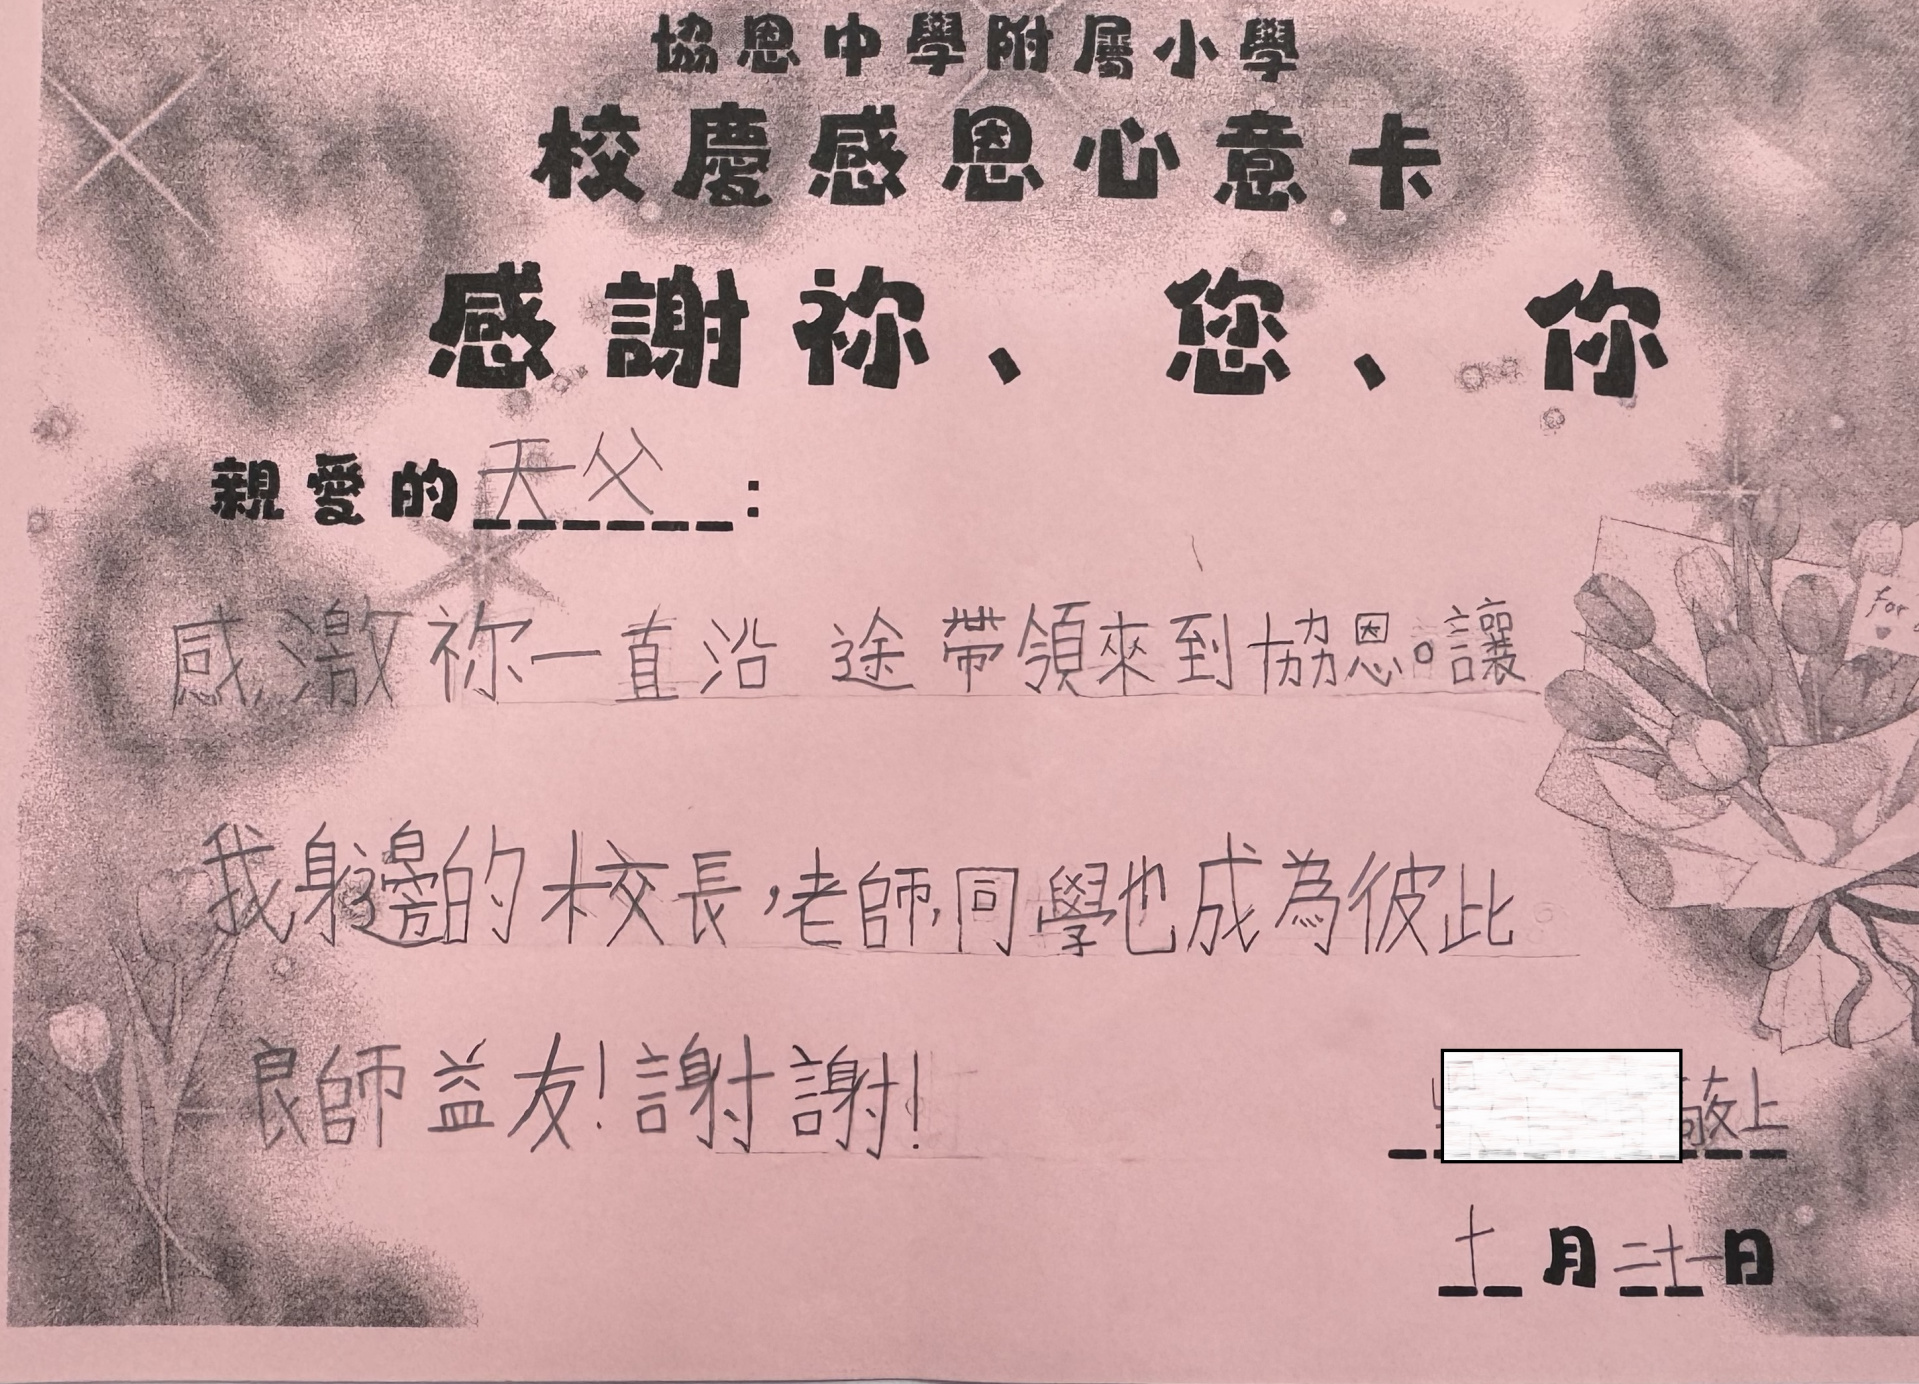 協恩中學附屬小學
校慶感恩心意卡
感謝祢、您、你
親愛的天父:
感激祢一直沿途帶領來到協恩。讓
我身邊的校長,老師,同學也成為彼此
良師益友!謝謝!
敬上
十月二十一日
for